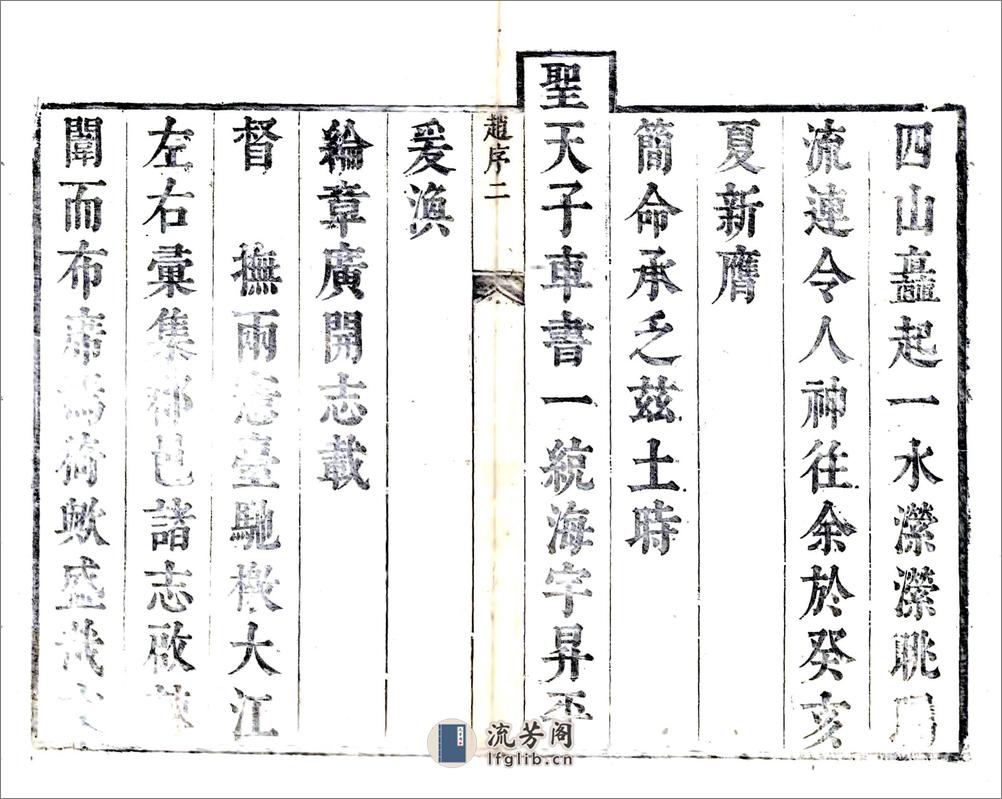 四山矗起一水瀠瀠眺
流連令人神往余於癸亥
夏新膺
簡命承乏兹土時
聖天子車書一統海宇昇
趙序二
爰渙
綸章廣開志載
督　撫兩憲臺馳檄大江
左右彙集郡邑諸志啟
闈而布席焉猗歟盛哉
流芳阁
lfglib.cn